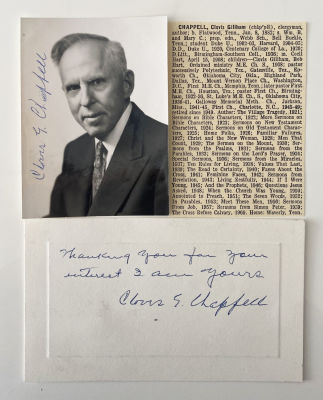 Clovis G. Chappell
CHAPPELL, Clovis Gillham (chăp'pĕl), clergyman,
author; b. Flatwood, Tenn., Jan. 8, 1882; s. Wm. B.
and Mary C.; prep. edn., Webb Sch., Bell Buckle,
Tenn.; student Duke U., 1902-03, Harvard, 1904-05;
D.D., Duke U., 1920, Centenary College of La., 1920;
D.Litt., Birmingham-Southern Coll., 1936; m. Cecil
Hart, April 15, 1908; children—Clovis Gillham, Bob
Hart. Ordained ministry M.E. Ch. S., 1908; pastor
successively Polytechnic, Tex., Gatesville, Tex.,
worth Ch., Oklahoma City, Okla., Highland Park,
Dallas, Tex., Mount Vernon Place Ch., Washington,
D.C., First M.E. Ch., Memphis, Tenn.; later pastor First
M.E. Ch., Houston, Tex.; pastor First Ch., Birming-
ham, 1932-36, St. Luke's M.E. Ch. S., Oklahoma City,
1936-41, Galloway Memorial Meth. Ch., Jackson,
Miss., 1941-45, First Ch., Charlotte, N.C., 1945-49;
retired since 1949. Author: The Village Tragedy, 1921;
Sermons on Biblical Characters, 1922; More Sermons on
Bible Characters, 1923; Sermons on New Testament
Characters, 1924; Sermons on Old Testament Charac-
ters, 1925; Home Folks, 1926; Familiar Failures,
1927; Christ and the New Woman, 1928; Men That
Count, 1929; The Sermon on the Mount, 1930; Ser-
mons from the Psalms, 1931; Sermons from the
Parables, 1933; Sermons on the Lord's Prayer, 1934;
Special Sermons, 1936; Sermons from the Miracles,
1937; Ten Rules for Living, 1938; Values That Last,
1939; The Road to Certainty, 1940; Faces About the
Cross, 1941; Feminine Faces, 1942; Sermons from
Revelation, 1943; Living Zestfully, 1944; If I Were
Young, 1945; And the Prophets, 1946; Questions Jesus
Asked, 1948; When the Church Was Young, 1950;
Anointed to Preach, 1951; The Seven Words, 1952;
In Parables, 1953; Meet These Men, 1956; Sermons
from Job, 1957; Sermons from Simon Peter, 1959;
The Cross Before Calvary, 1960. Home: Waverly, Tenn.
Thanking you for your
interest I am yours
Clovis G. Chappell